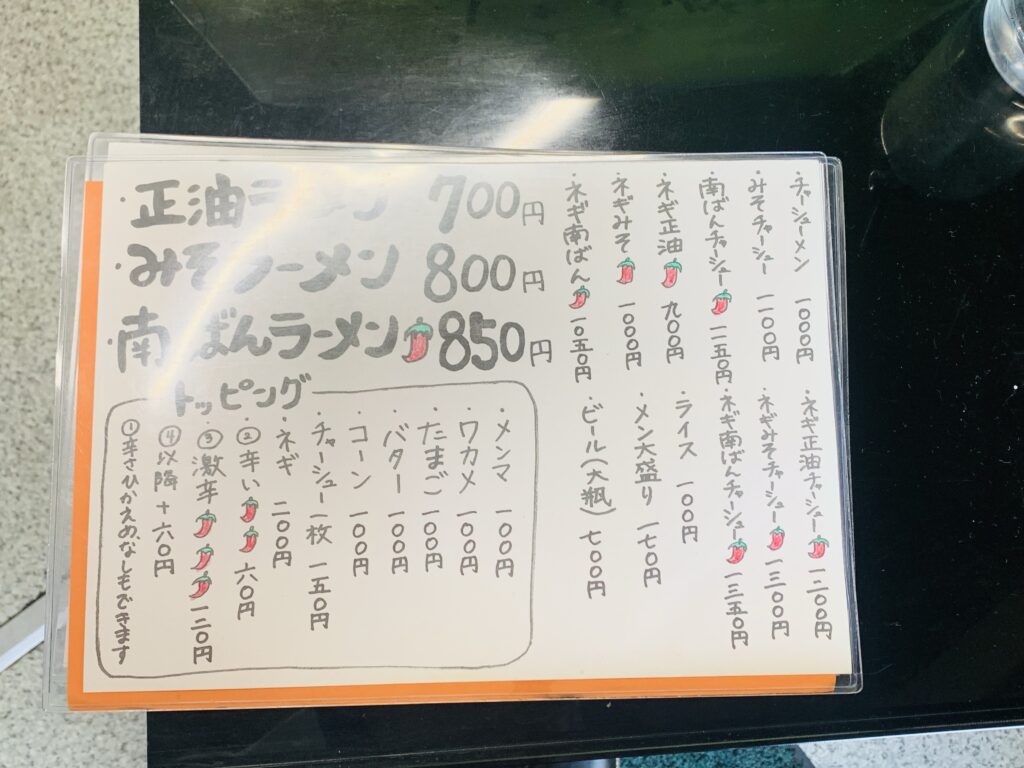 ・正油ラーメン 700円
・みそラーメン 800円
・南ばんラーメン 850円
・チャーシューメン 一〇〇〇円
・みそチャーシュー 一一〇〇円
・南ばんチャーシュー 一一五〇円
・ネギ正油 九〇〇円
・ネギみそ 一〇〇〇円
・ネギ南ばん 一〇五〇円
・ネギ正油チャーシュー 一二〇〇円
・ネギみそチャーシュー 一三〇〇円
・ネギ南ばんチャーシュー 一三五〇円
・ライス 一〇〇円
・メン大盛り 一七〇円
・ビール(大瓶) 七〇〇円
トッピング
・メンマ 一〇〇円
・ワカメ 一〇〇円
・たまご 一〇〇円
・バター 一〇〇円
・コーン 一〇〇円
・チャーシュー一枚 一五〇円
・ネギ 二〇〇円
・②辛い 六〇円
・③激辛 一二〇円
④以降 +六〇円
①辛さひかえめ、なしもできます